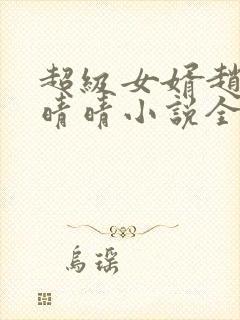 超级女婿趙
晴晴小说全
烏瑤